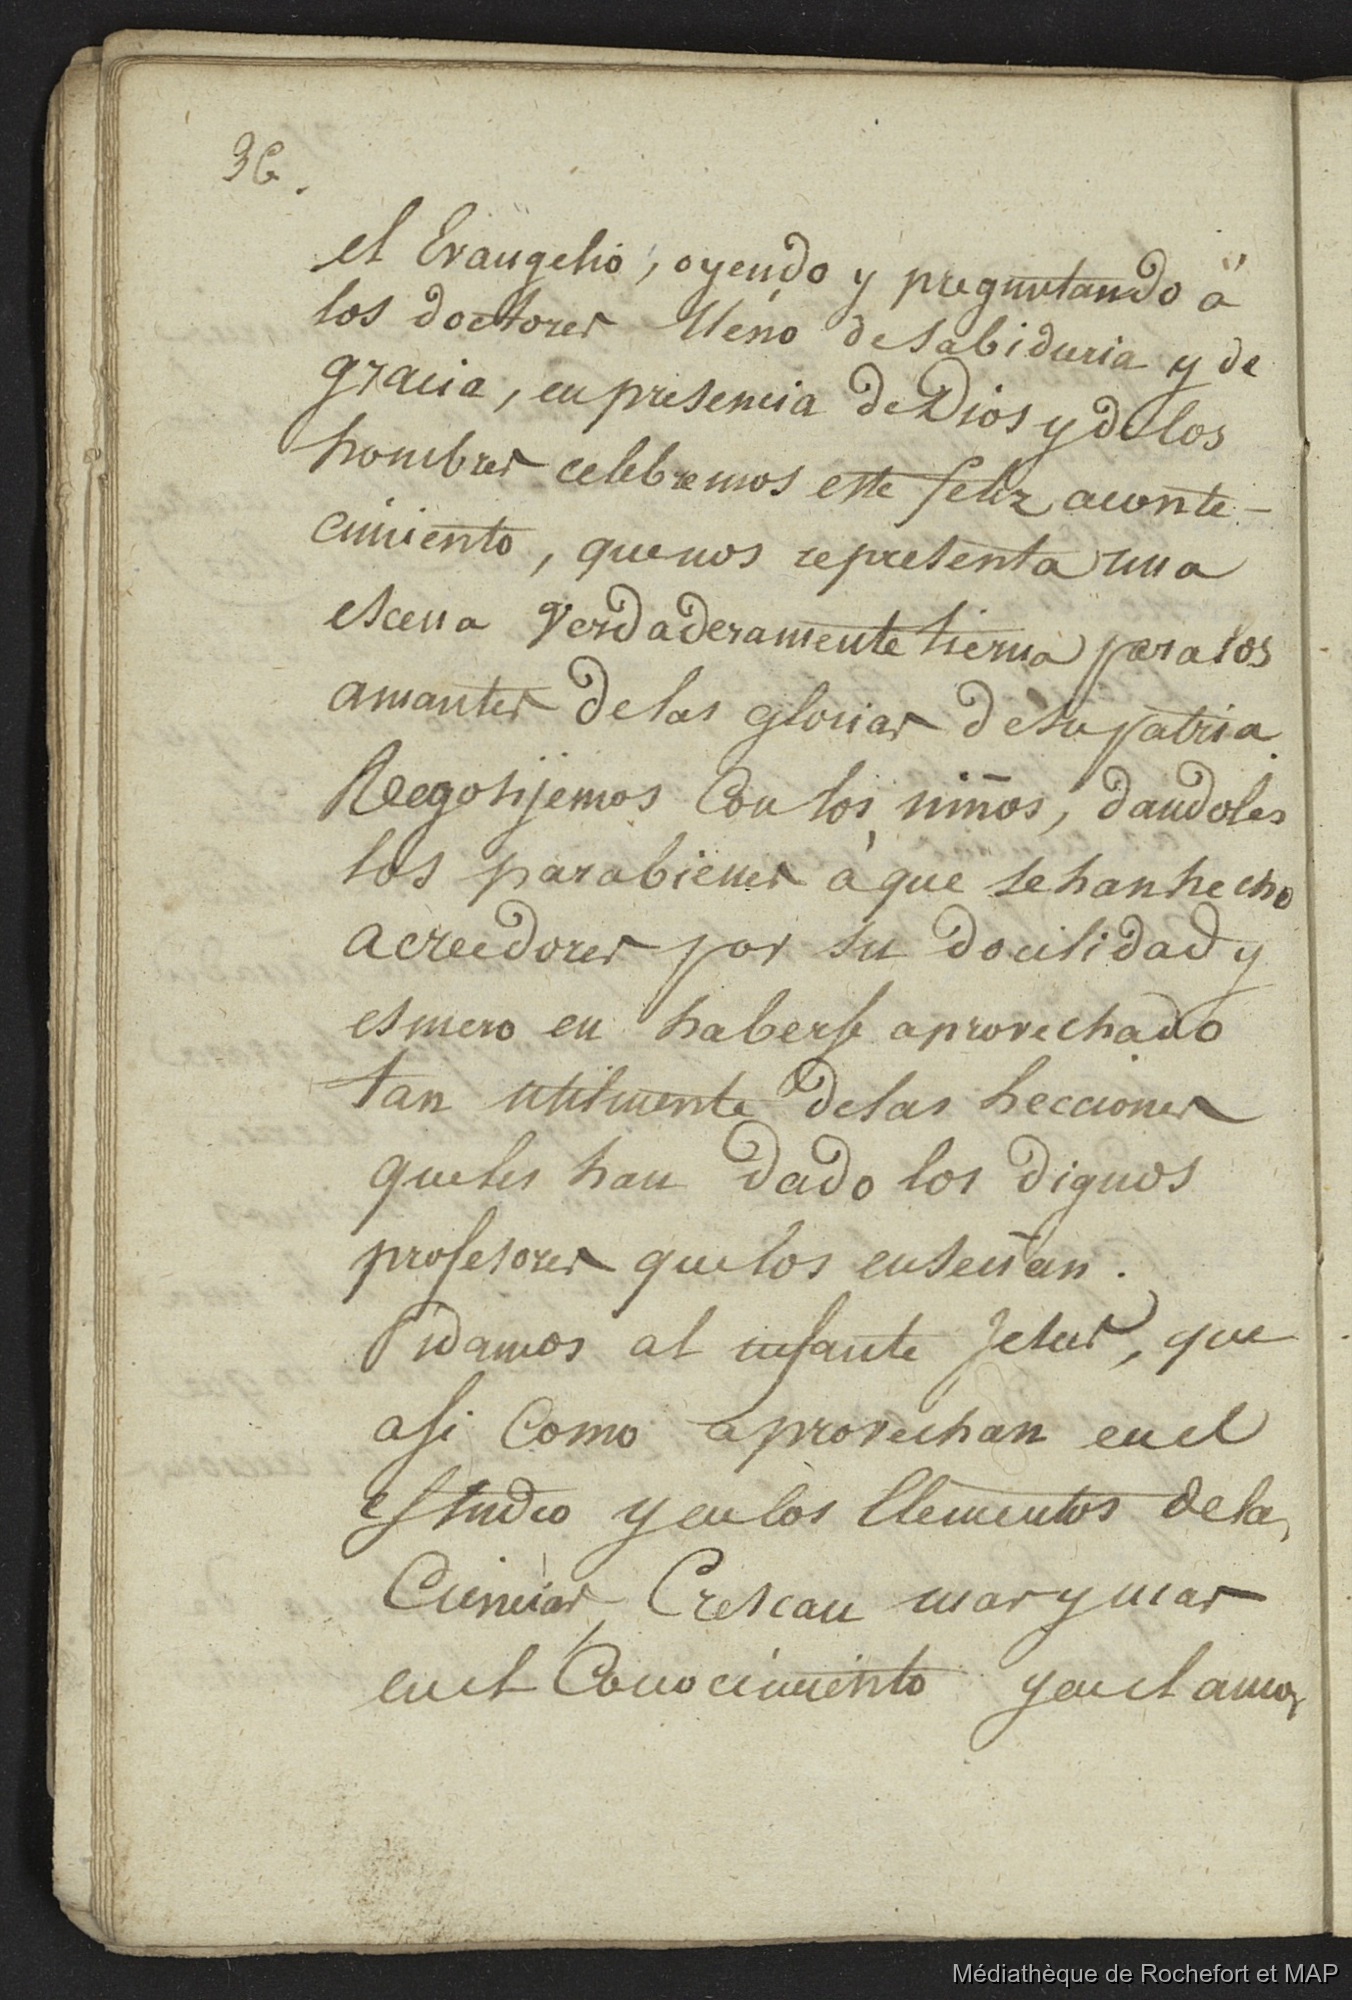 36.
el Evangelio, oyendo y preguntando à
los doctores lleno de sabiduria y de
gracia, en presencia de Dios y de los
hombres celebremos este feliz aconte-
cimiento, que nos representa una
escena verdaderamente tierna para los
amantes de las glorias de su patria.
Regosijemos Con los niños, dandoles
los parabienes à que se han hecho
acreedores por su docilidad y
esmero en haberse aprovechado
tan utilmente de las lecciones
que les han dado los dignos
profesores que los enseñan.
Pidamos al infante Jesus, que
asi Como aprovechan en el
estudio y en los Elementos de las
Ciencias, Crescan mas y mas
en el Conocimiento y en el amor
Médiathèque de Rochefort et MAP